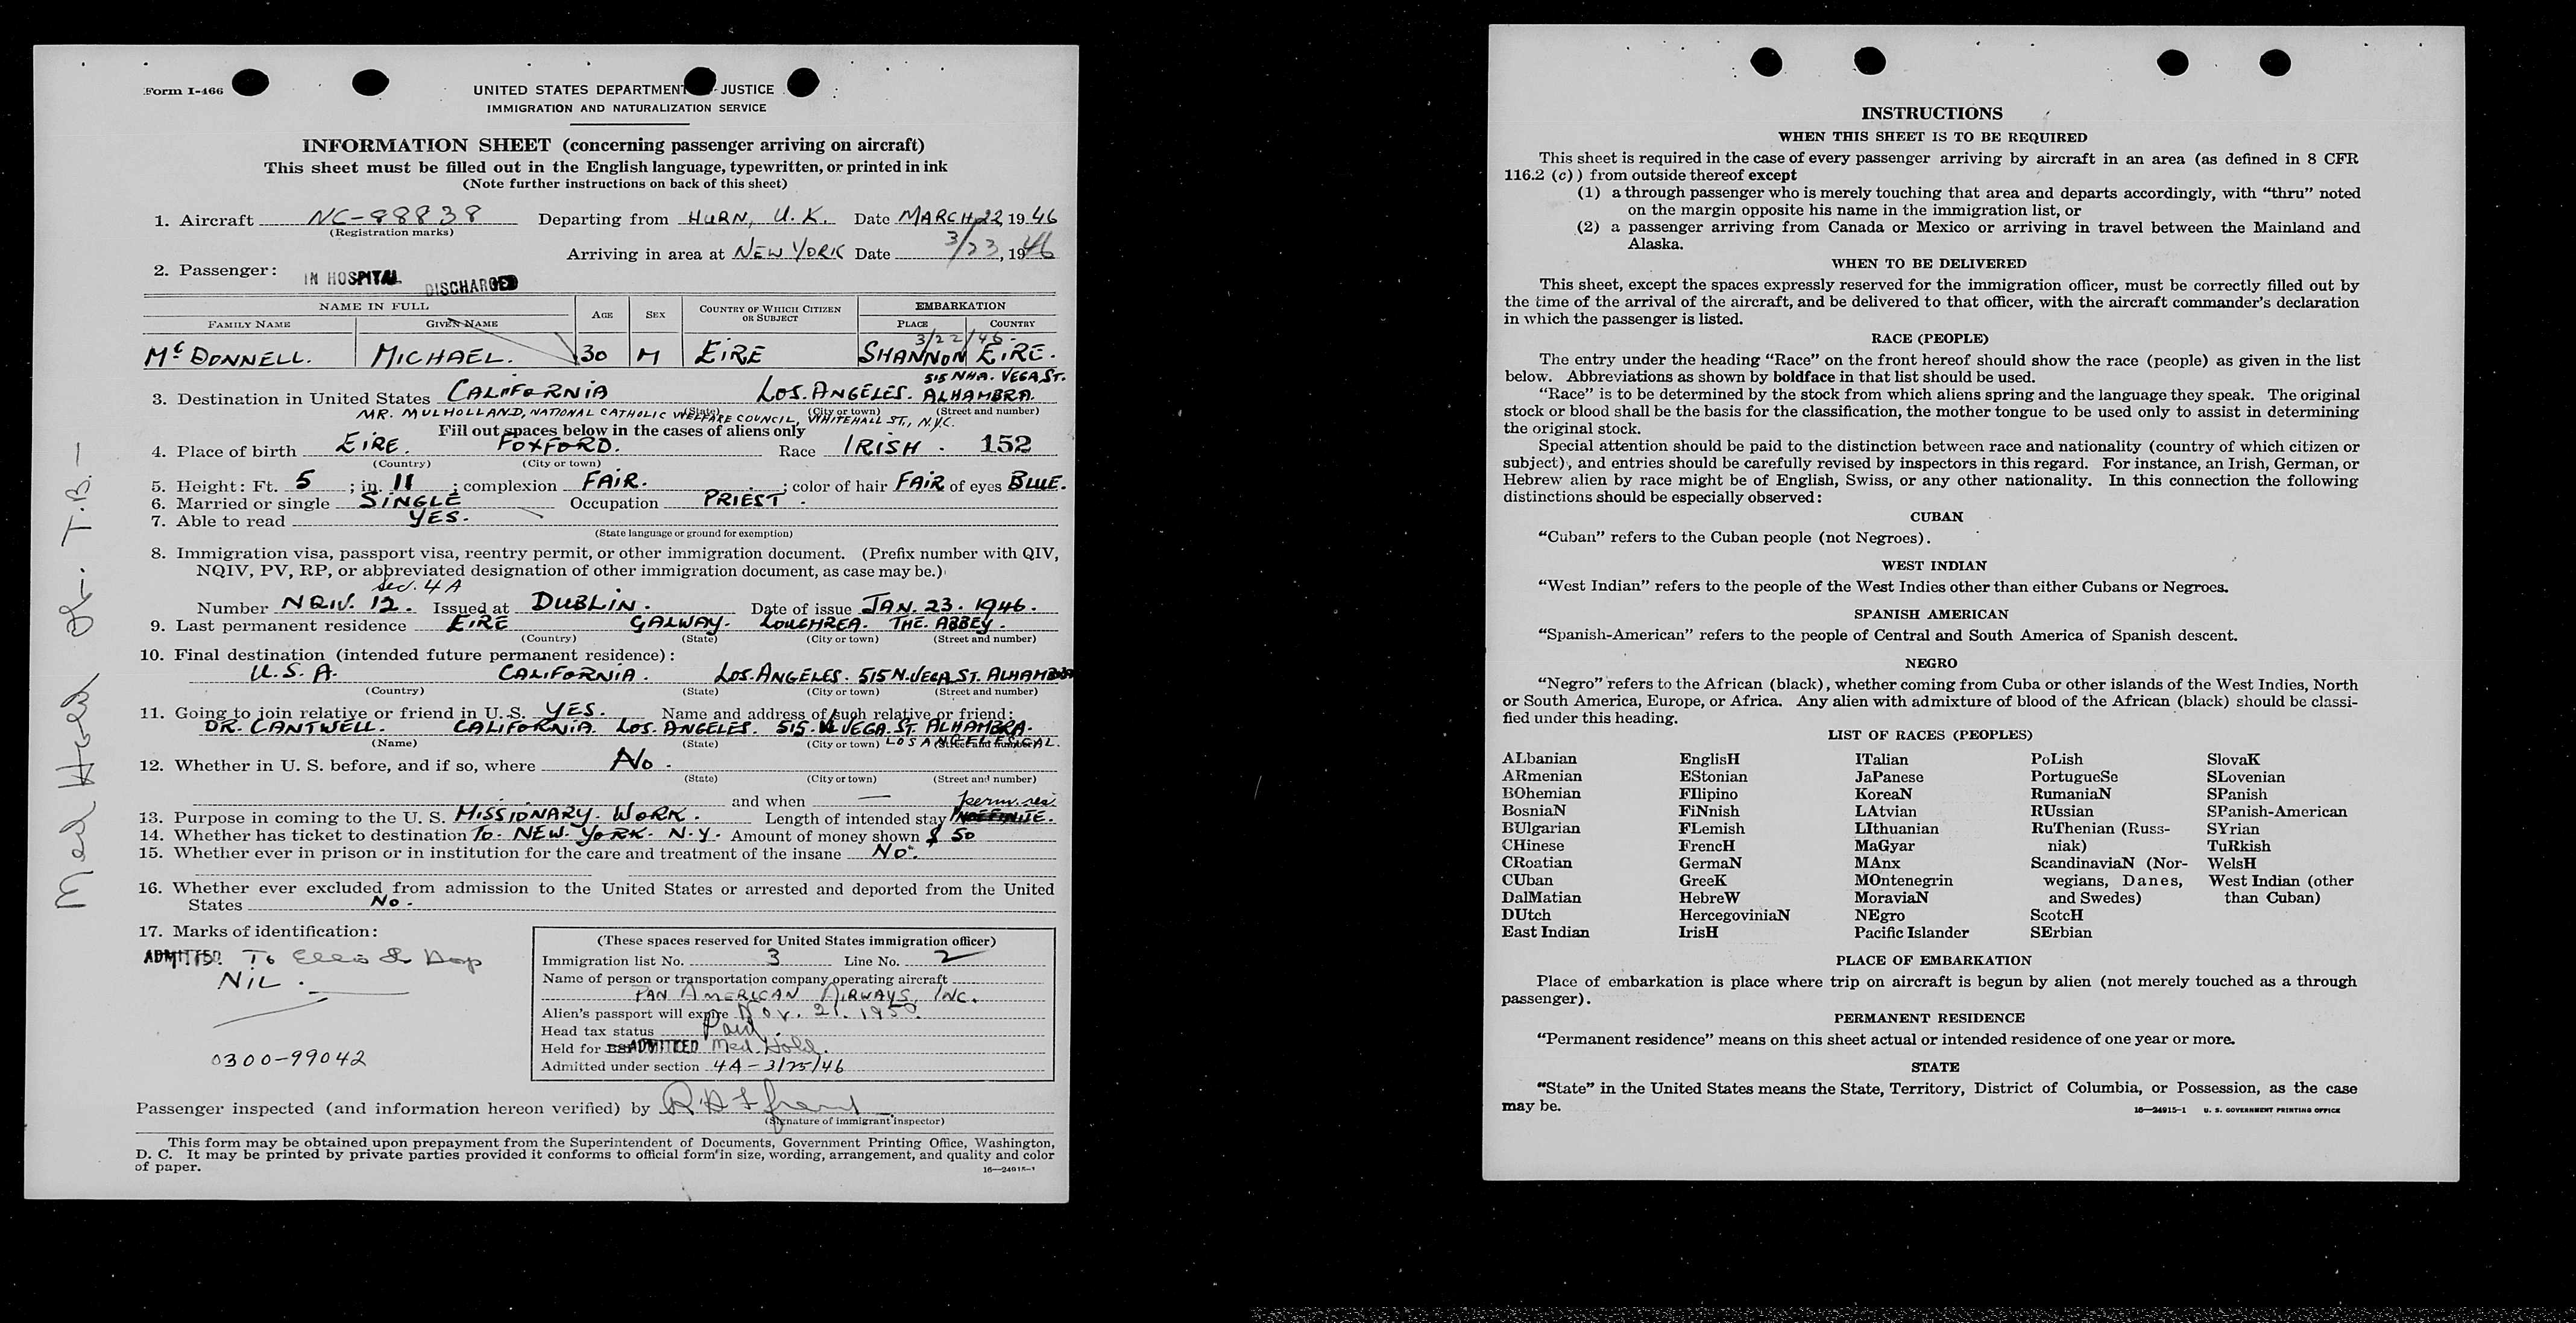 Form I-466
UNITED STATES DEPARTMENT JUSTICE
IMMIGRATION AND NATURALIZATION SERVICE
INFORMATION SHEET (concerning passenger arriving on aircraft)
This sheet must be filled out in the English language, typewritten, or printed in ink
(Note further instructions on back of this sheet)
1. Aircraft NC-88838 Departing from HURN, U.K. Date MARCH 22, 1946
(Registration marks)
Arriving in area at NEW YORK Date 3/23, 1946
2. Passenger: IN HOSPITAL DISCHARGED
NAME IN FULL AGE SEX COUNTRY OF WHICH CITIZEN OR SUBJECT EMBARKATION
FAMILY NAME GIVEN NAME PLACE COUNTRY
3/22/46-
McDONNELL. MICHAEL. 30 M EIRE SHANNON EIRE.
515 NHA. VEGA ST.
3. Destination in United States CALIFORNIA LOS. ANGELES. ALHAMBRA.
(State) (City or town) (Street and number)
MR. MULHOLLAND, NATIONAL CATHOLIC WELFARE COUNCIL, WHITEHALL ST., N.Y.C.
Fill out spaces below in the cases of aliens only
4. Place of birth EIRE. FOXFORD. Race IRISH. 152
(Country) (City or town)
5. Height: Ft. 5; in. 11; complexion FAIR.; color of hair FAIR of eyes BLUE.
6. Married or single SINGLE Occupation PRIEST.
7. Able to read YES.
(State language or ground for exemption)
8. Immigration visa, passport visa, reentry permit, or other immigration document. (Prefix number with QIV,
NQIV, PV, RP, or abbreviated designation of other immigration document, as case may be.)
Sec. 4A
Number NQIV. 12. Issued at DUBLIN. Date of issue JAN. 23. 1946.
9. Last permanent residence EIRE GALWAY. LOUGHREA. THE. ABBEY.
(Country) (State) (City or town) (Street and number)
10. Final destination (intended future permanent residence):
U.S.A. CALIFORNIA. LOS. ANGELES. 515 N. VEGA ST. ALHAMBRA
(Country) (State) (City or town) (Street and number)
11. Going to join relative or friend in U. S. YES. Name and address of such relative or friend:
DR. CANTWELL. CALIFORNIA. LOS. ANGELES. 515. N VEGA. ST. ALHAMBRA.
(Name) (State) (City or town) LOS ANGELES, CAL. (Street and number)
12. Whether in U. S. before, and if so, where No.
(State) (City or town) (Street and number)
and when — perm. res
13. Purpose in coming to the U. S. MISSIONARY. WORK. Length of intended stay INDEFINITE.
14. Whether has ticket to destination TO. NEW. YORK. N.Y. Amount of money shown $ 50
15. Whether ever in prison or in institution for the care and treatment of the insane No.
16. Whether ever excluded from admission to the United States or arrested and deported from the United
States No.
17. Marks of identification:
ADMITTED To Ellis Is Hosp
NIL.
0300-99042
(These spaces reserved for United States immigration officer)
Immigration list No. 3 Line No. 2
Name of person or transportation company operating aircraft
PAN AMERICAN AIRWAYS, INC.
Alien's passport will expire Nov. 21. 1950.
Head tax status Paid.
Held for ADMITTED Med. Hold.
Admitted under section 4A-3/25/46
Passenger inspected (and information hereon verified) by
(Signature of immigrant inspector)
This form may be obtained upon prepayment from the Superintendent of Documents, Government Printing Office, Washington,
D. C. It may be printed by private parties provided it conforms to official form in size, wording, arrangement, and quality and color
of paper.
16—24915-1
Med Hold T.B.—
INSTRUCTIONS
WHEN THIS SHEET IS TO BE REQUIRED
This sheet is required in the case of every passenger arriving by aircraft in an area (as defined in 8 CFR
116.2 (c)) from outside thereof except
(1) a through passenger who is merely touching that area and departs accordingly, with “thru” noted
on the margin opposite his name in the immigration list, or
(2) a passenger arriving from Canada or Mexico or arriving in travel between the Mainland and
Alaska.
WHEN TO BE DELIVERED
This sheet, except the spaces expressly reserved for the immigration officer, must be correctly filled out by
the time of the arrival of the aircraft, and be delivered to that officer, with the aircraft commander's declaration
in which the passenger is listed.
RACE (PEOPLE)
The entry under the heading “Race” on the front hereof should show the race (people) as given in the list
below. Abbreviations as shown by boldface in that list should be used.
“Race” is to be determined by the stock from which aliens spring and the language they speak. The original
stock or blood shall be the basis for the classification, the mother tongue to be used only to assist in determining
the original stock.
Special attention should be paid to the distinction between race and nationality (country of which citizen or
subject), and entries should be carefully revised by inspectors in this regard. For instance, an Irish, German, or
Hebrew alien by race might be of English, Swiss, or any other nationality. In this connection the following
distinctions should be especially observed:
CUBAN
“Cuban” refers to the Cuban people (not Negroes).
WEST INDIAN
“West Indian” refers to the people of the West Indies other than either Cubans or Negroes.
SPANISH AMERICAN
“Spanish-American” refers to the people of Central and South America of Spanish descent.
NEGRO
“Negro” refers to the African (black), whether coming from Cuba or other islands of the West Indies, North
or South America, Europe, or Africa. Any alien with admixture of blood of the African (black) should be classi-
fied under this heading.
LIST OF RACES (PEOPLES)
ALbanian EnglisH ITalian PoLish SlovaK
ARmenian EStonian JaPanese PortugueSe SLovenian
BOhemian FIlipino KoreaN RumaniaN SPanish
BosniaN FiNnish LAtvian RUssian SPanish-American
BUlgarian FLemish LIthuanian RuThenian (Russ- SYrian
CHinese FrencH MaGyar niak) TuRkish
CRoatian GermaN MAnx ScandinaviaN (Nor- WelsH
CUban GreeK MOntenegrin wegians, Danes, West Indian (other
DalMatian HebreW MoraviaN and Swedes) than Cuban)
DUtch HercegoviniaN NEgro ScotcH
East Indian IrisH Pacific Islander SErbian
PLACE OF EMBARKATION
Place of embarkation is place where trip on aircraft is begun by alien (not merely touched as a through
passenger).
PERMANENT RESIDENCE
“Permanent residence” means on this sheet actual or intended residence of one year or more.
STATE
“State” in the United States means the State, Territory, District of Columbia, or Possession, as the case
may be.
16—24915-1 U. S. GOVERNMENT PRINTING OFFICE